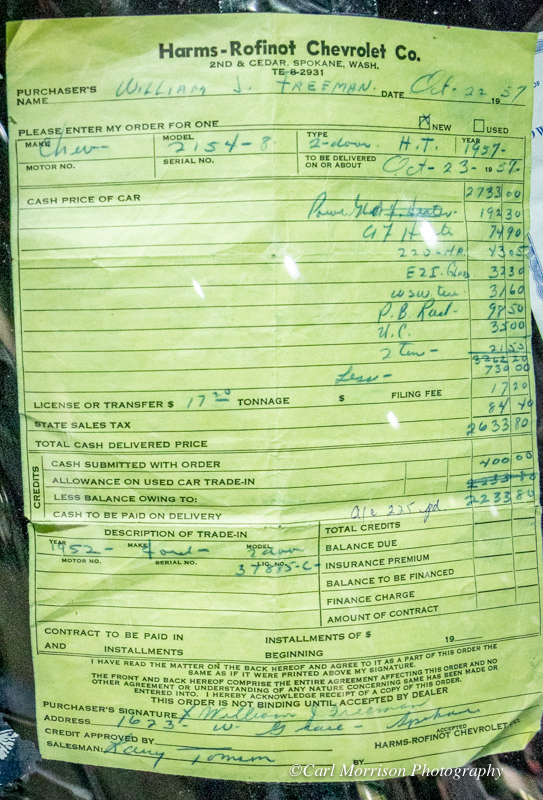 Harms-Rofinot Chevrolet Co.
2ND & CEDAR, SPOKANE, WASH.
TE 8-2931
PURCHASER'S NAME WILLIAM J. FREEMAN DATE Oct-22 1957
PLEASE ENTER MY ORDER FOR ONE X NEW USED
MAKE Chev- MODEL 2154-8 TYPE 2-door H.T. YEAR 1957-
MOTOR NO. SERIAL NO. TO BE DELIVERED ON OR ABOUT Oct-23- 1957-
CASH PRICE OF CAR 2733 00
192 30
74 90
220-HP. 43 05
E2I 32 30
WSW 31 60
P.B. Rad- 98 50
U.C. 35 00
2 Ton- 21 55
3262 20
Less- 730 00
LICENSE OR TRANSFER $ 17 20 TONNAGE $ FILING FEE 17 20
STATE SALES TAX 84 40
TOTAL CASH DELIVERED PRICE 2633 80
CREDITS
CASH SUBMITTED WITH ORDER 400 00
ALLOWANCE ON USED CAR TRADE-IN 2233 80
LESS BALANCE OWING TO: 2233 80
CASH TO BE PAID ON DELIVERY 225 pd.
DESCRIPTION OF TRADE-IN
YEAR 1952- MAKE Ford- MODEL 2 door
MOTOR NO. SERIAL NO. LIC. NO. 37885-C-
TOTAL CREDITS
BALANCE DUE
INSURANCE PREMIUM
BALANCE TO BE FINANCED
FINANCE CHARGE
AMOUNT OF CONTRACT
CONTRACT TO BE PAID IN INSTALLMENTS OF $ 19
AND INSTALLMENTS BEGINNING
I HAVE READ THE MATTER ON THE BACK HEREOF AND AGREE TO IT AS A PART OF THIS ORDER THE
SAME AS IF IT WERE PRINTED ABOVE MY SIGNATURE.
THE FRONT AND BACK HEREOF COMPRISE THE ENTIRE AGREEMENT AFFECTING THIS ORDER AND NO
OTHER AGREEMENT OR UNDERSTANDING OF ANY NATURE CONCERNING SAME HAS BEEN MADE OR
ENTERED INTO. I HEREBY ACKNOWLEDGE RECEIPT OF A COPY OF THIS ORDER.
THIS ORDER IS NOT BINDING UNTIL ACCEPTED BY DEALER
PURCHASER'S SIGNATURE X William J Freeman
ADDRESS 1623 W- Spokane
CREDIT APPROVED BY ACCEPTED
HARMS-ROFINOT CHEVROLET CO.
SALESMAN: BY
©Carl Morrison Photography